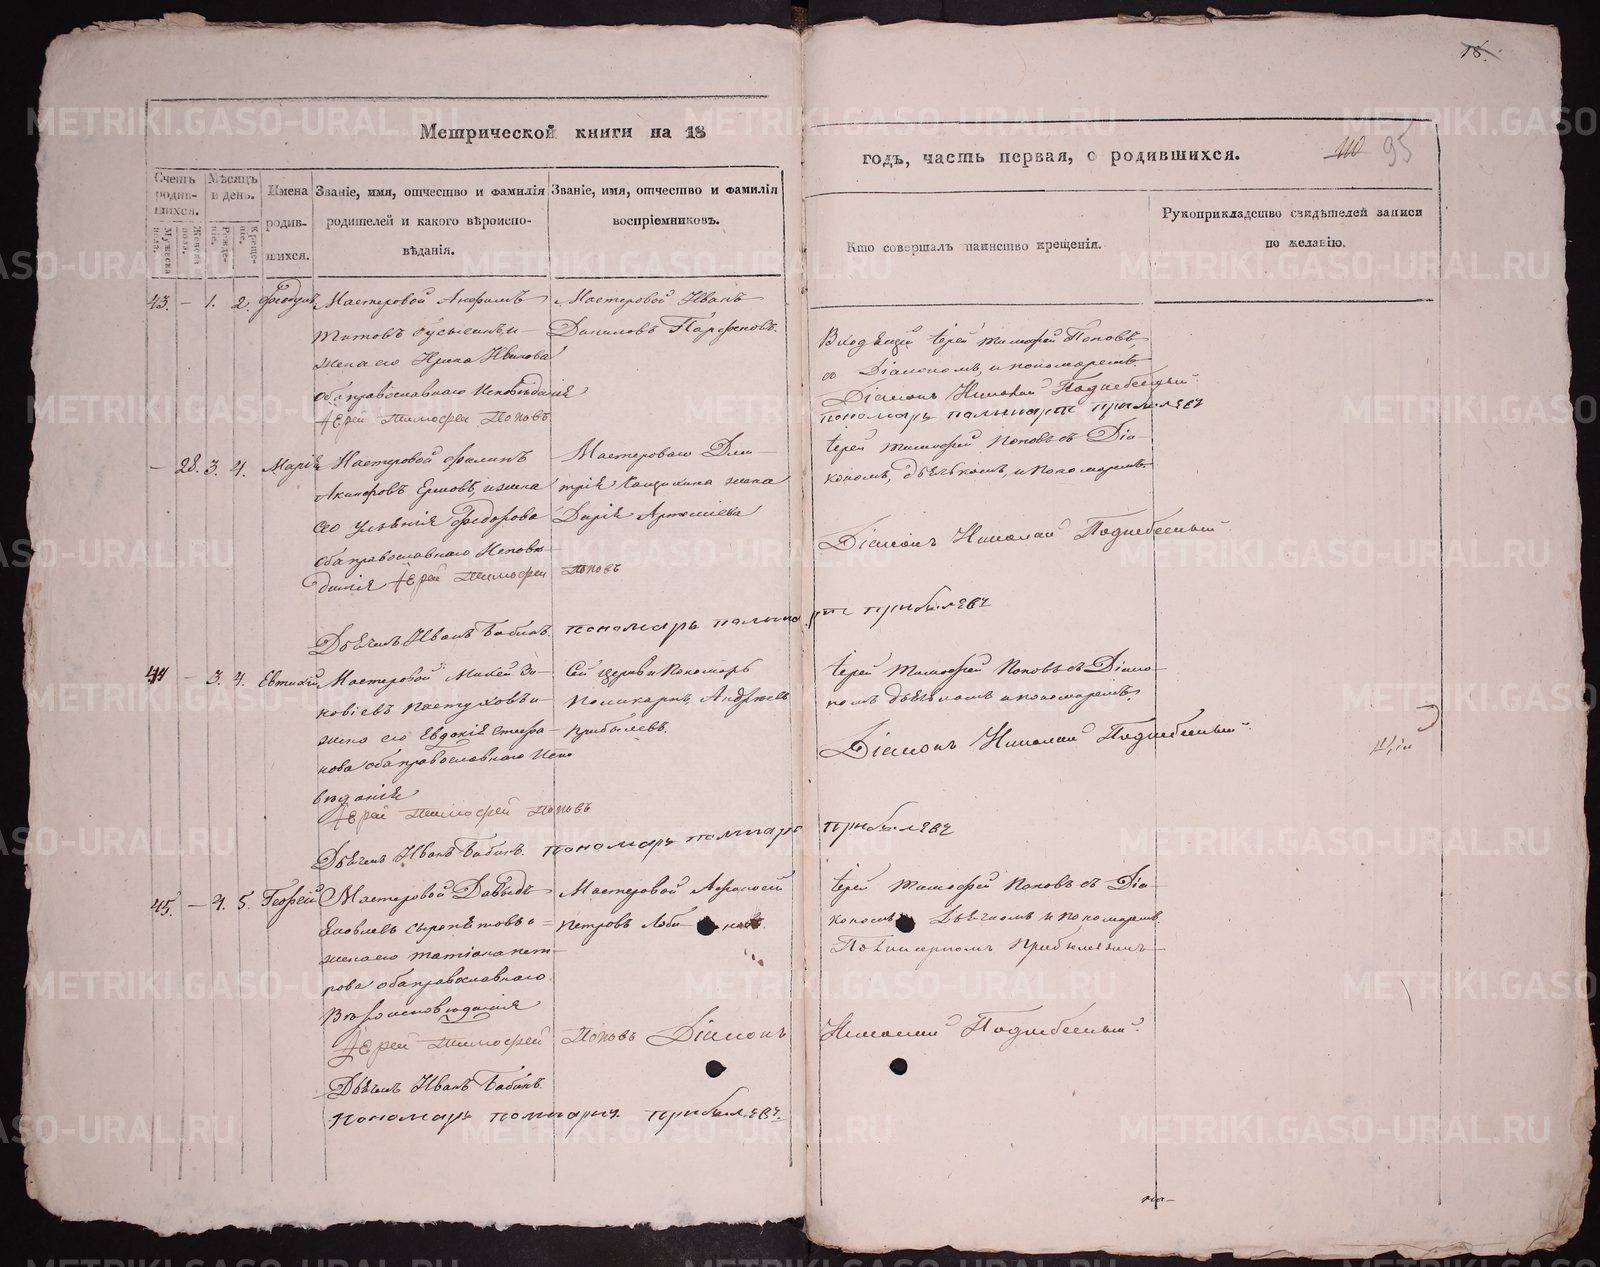 18.
Метрической книги на 18
годъ, часть первая, о родившихся.
110 95
Счетъ родившихся.
Мѣсяцъ и день.
Имена родившихся.
Званіе, имя, отчество и фамилія родителей и какого вѣроисповѣданія.
Званіе, имя, отчество и фамилія воспріемниковъ.
Кто совершалъ таинство крещенія.
Рукоприкладство свидѣтелей записи по желанію.
Мужеска пола.
Женска пола.
Рожденіе.
Крещеніе.
43. – 1. 2.
Мастеровой
Титовъ
жена его Ирина Иванова
оба православнаго исповѣданія
Іерей Тимофей Поповъ
Мастеровой Иванъ
Даниловъ Парфеновъ.
Іерей Тимофей Поповъ
съ Діакономъ, и пономаремъ
Діаконъ Николай Поднебесный
пономарь поликарпъ прибылевъ
– 28. 3. 4. Марія
Мастеровой Филипъ
Ершовъ, и жена
его Федорова
оба православнаго Исповѣ-
данія Іерей Тимофей Поповъ
Мастероваго Дми-
трія жена
Дарія Артеміева
Іерей Тимофей Поповъ съ Діа-
кономъ, дьячкомъ, и пономаремъ
Діаконъ Николай Поднебесный
Дьячекъ Иванъ Бабинъ. пономарь поликарпъ прибылевъ
44 – 3. 4. Евтихій
Мастеровой
Пастуховъ и
жена его Евдокія Стефа-
нова оба православнаго Испо
вѣданія
Іерей Тимофей Поповъ
Сей церкви Пономарь
Поликарпъ Андреевъ
Прибылевъ.
Іерей Тимофей Поповъ съ Діако-
номъ дьячкомъ и пономаремъ
Діаконъ Николай Поднебесный
Дьячекъ Иванъ Бабинъ. пономарь поликарпъ прибылевъ
45. – 4. 5. Георгій
Мастеровой Давыдъ
Яковлевъ Сыропятовъ и
жена его татіана пет-
рова оба православнаго
Вѣроисповѣданія
Мастеровой Афанасій
Петровъ
Іерей Тимофей Поповъ съ Діа-
кономъ Дьячкомъ и пономаремъ
Поликарпомъ Прибылевымъ
Іерей Тимофей Поповъ Діаконъ Николай Поднебесный
Дьячекъ Иванъ Бабинъ.
Пономарь поликарпъ прибылевъ
METRIKI.GASO-URAL.RU